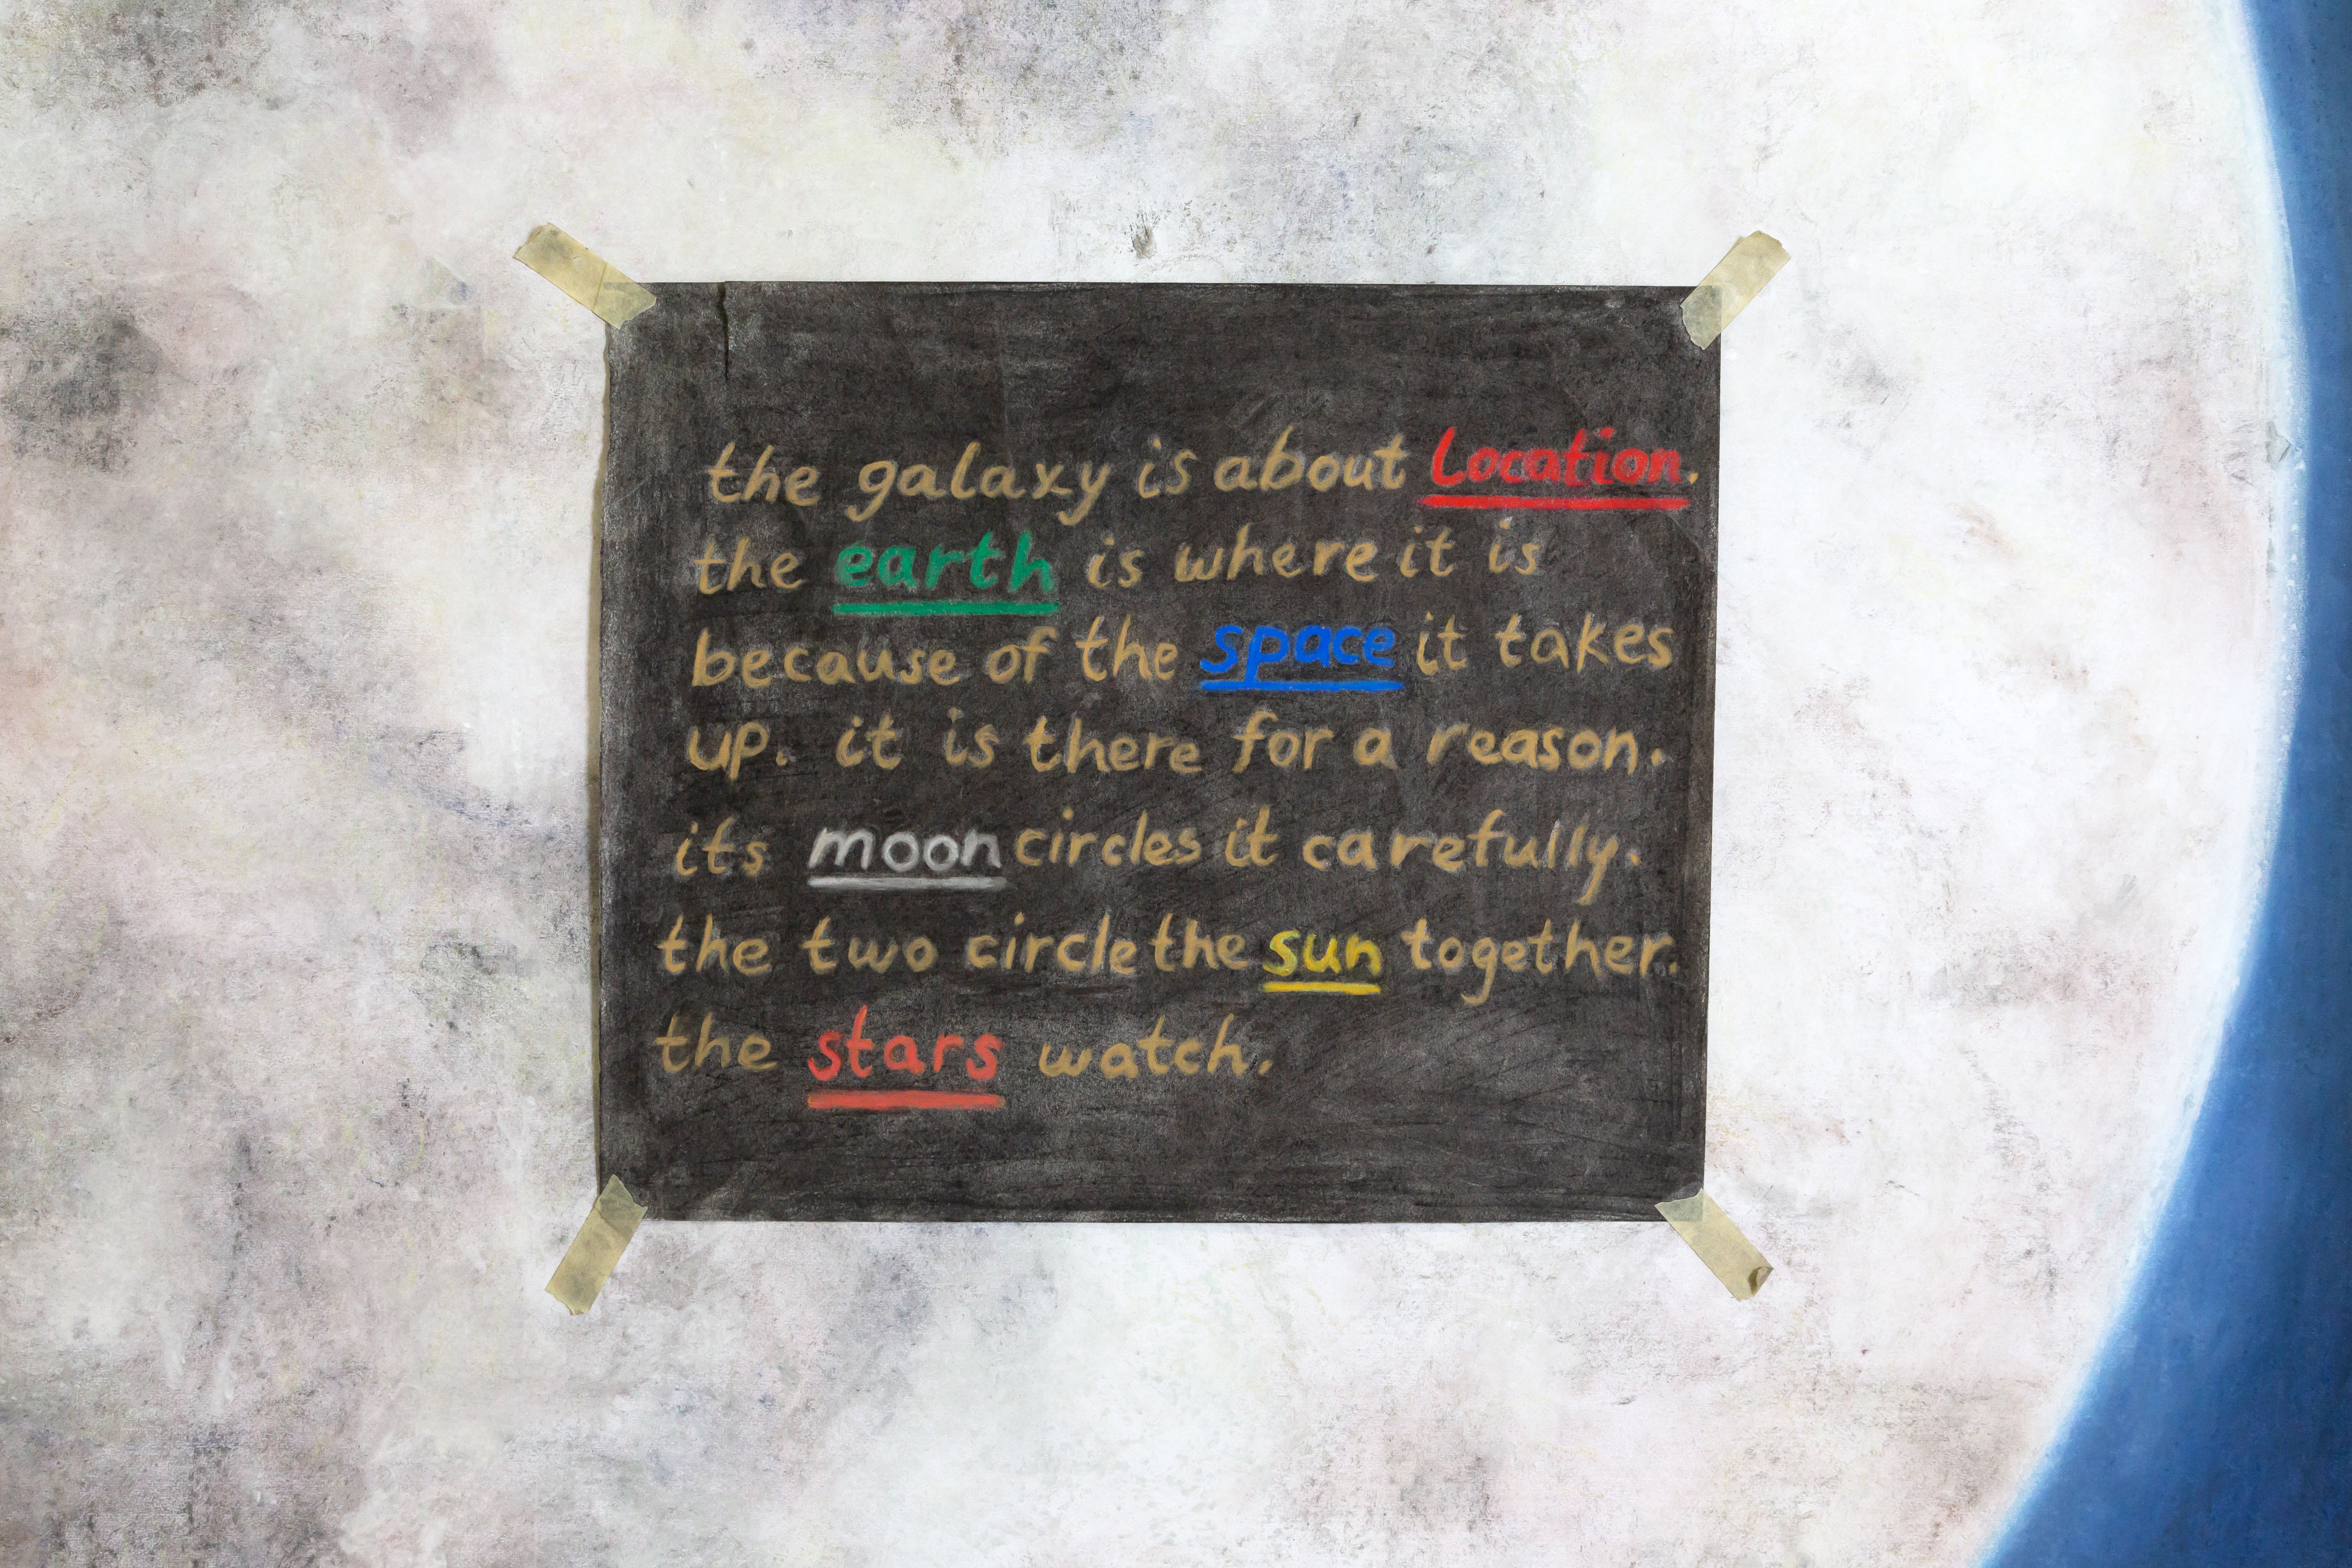 the galaxy is about Location.
the earth is where it is
because of the space it takes
up. it is there for a reason.
its moon circles it carefully.
the two circle the sun together.
the stars watch.